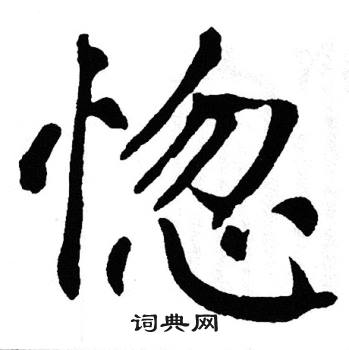 惚
词典网